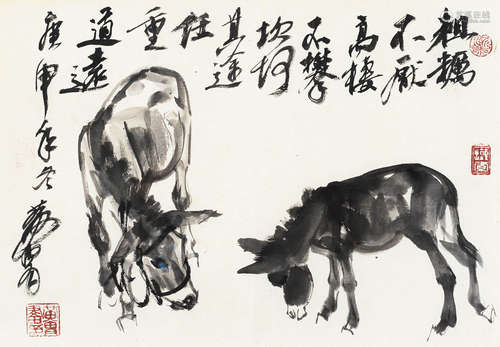 粗糲
不厭
高棲
不攀
坎坷
其途
任
重
道遠
庚申年冬
黄胄